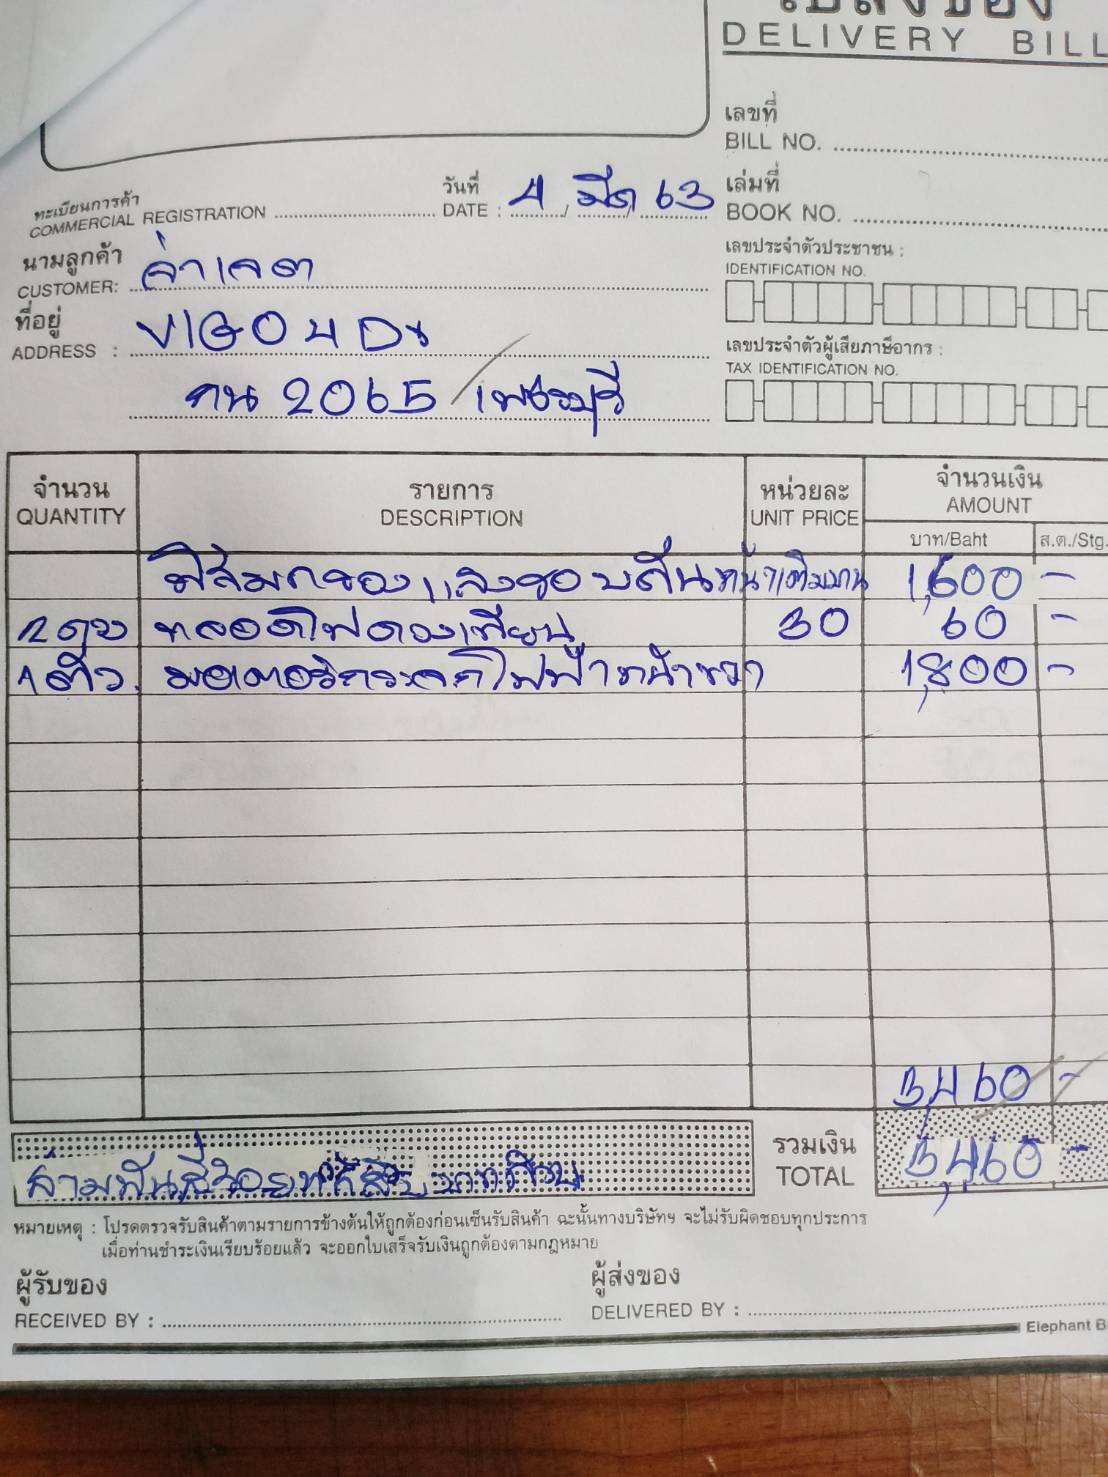 ใบส่งของ
DELIVERY BILL
เลขที่
BILL NO.
ทะเบียนการค้า
COMMERCIAL REGISTRATION
วันที่
DATE : 4 / มีค / 63
เล่มที่
BOOK NO.
นามลูกค้า
CUSTOMER: จ่าเจต
เลขประจำตัวประชาชน :
IDENTIFICATION NO.
ที่อยู่
ADDRESS : VIGO 4 Dr
กน 2065 / เพชรบุรี
เลขประจำตัวผู้เสียภาษีอากร :
TAX IDENTIFICATION NO.
จำนวน
QUANTITY
รายการ
DESCRIPTION
หน่วยละ
UNIT PRICE
จำนวนเงิน
AMOUNT
บาท/Baht
ส.ต./Stg.
ฟิล์มกรองแสงรอบคันหน้าเต็มบาน 1,600 -
2 ดวง หลอดไฟดวงเทียน 30 60 -
1 ตัว มอเตอร์กระจกไฟฟ้าหน้าขวา 1,800 -
3,460 -
สามพันสี่ร้อยหกสิบบาทถ้วน
รวมเงิน
TOTAL
3,460 -
หมายเหตุ : โปรดตรวจรับสินค้าตามรายการข้างต้นให้ถูกต้องก่อนเซ็นรับสินค้า ฉะนั้นทางบริษัทฯ จะไม่รับผิดชอบทุกประการ
เมื่อท่านชำระเงินเรียบร้อยแล้ว จะออกใบเสร็จรับเงินถูกต้องตามกฎหมาย
ผู้รับของ
RECEIVED BY :
ผู้ส่งของ
DELIVERED BY :
Elephant B